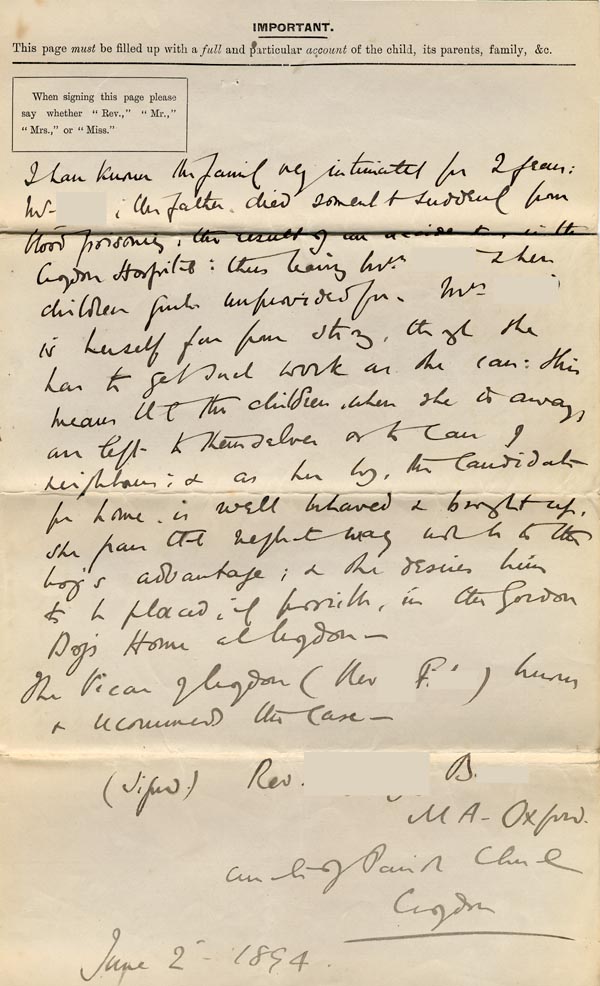 IMPORTANT.
This page must be filled up with a full and particular account of the child, its parents, family, &c.
When signing this page please
say whether "Rev.," "Mr.,"
"Mrs.," or "Miss."
I have known the family very intimately for 2 years:
Mr. ; the father died somewhat suddenly from
blood poisoning, the result of an accident, in the
Croydon Hospital: thus leaving Mrs & her
children quite unprovided for. Mrs
is herself far from strong, though she
has to get such work as she can: this
means that the children when she is away,
are left to themselves or to care of
neighbours: & as her boy, the Candidate
for home is well behaved & brought up,
she fears that neglect may not be to the
boy's advantage; & she desires him
to be placed, if possible, in the Gordon
Boys Home at Croydon—
The Vicar of Croydon (Rev F. ) knows
& recommends the case—
(Signed.) Rev. B.
M A - Oxford.
Curate of Parish Church
Croydon
June 2 - 1894.